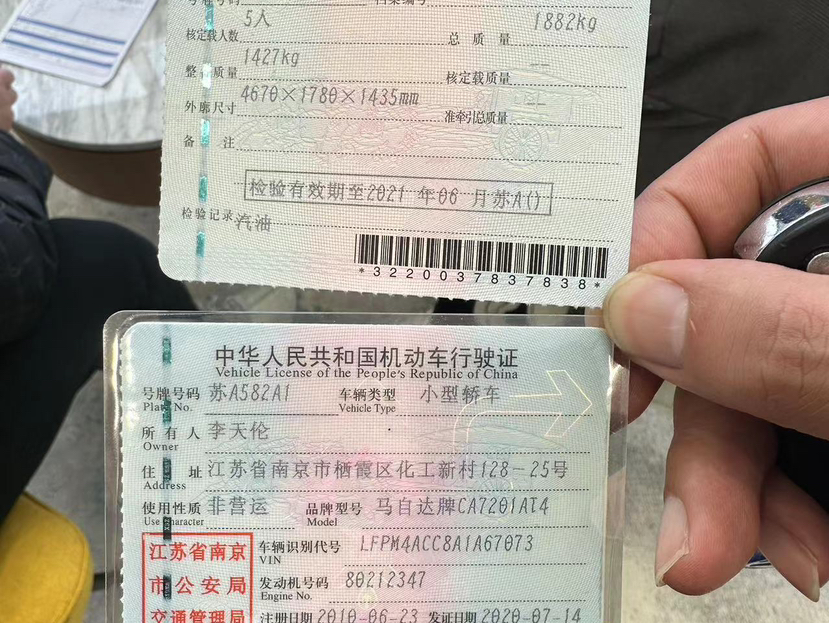 号牌号码 档案编号
核定载人数 5人 总质量 1882kg
整备质量 1427kg 核定载质量 --
外廓尺寸 4670×1780×1435mm 准牵引总质量 --
备注
检验有效期至2021 年06 月苏A()
检验记录 汽油
*3220037837838*
中华人民共和国机动车行驶证
Vehicle License of the People's Republic of China
号牌号码 苏A582A1 车辆类型 小型轿车
Plate No. Vehicle Type
所有人 李天伦
Owner
住址 江苏省南京市栖霞区化工新村128-25号
Address
使用性质 非营运 品牌型号 马自达牌CA7201AT4
Use Character Model
江苏省南京 车辆识别代号 LFPM4ACC8A1A67073
VIN
市公安局 发动机号码 80212347
Engine No.
交通管理局 注册日期 2010-06-23 发证日期 2020-07-14